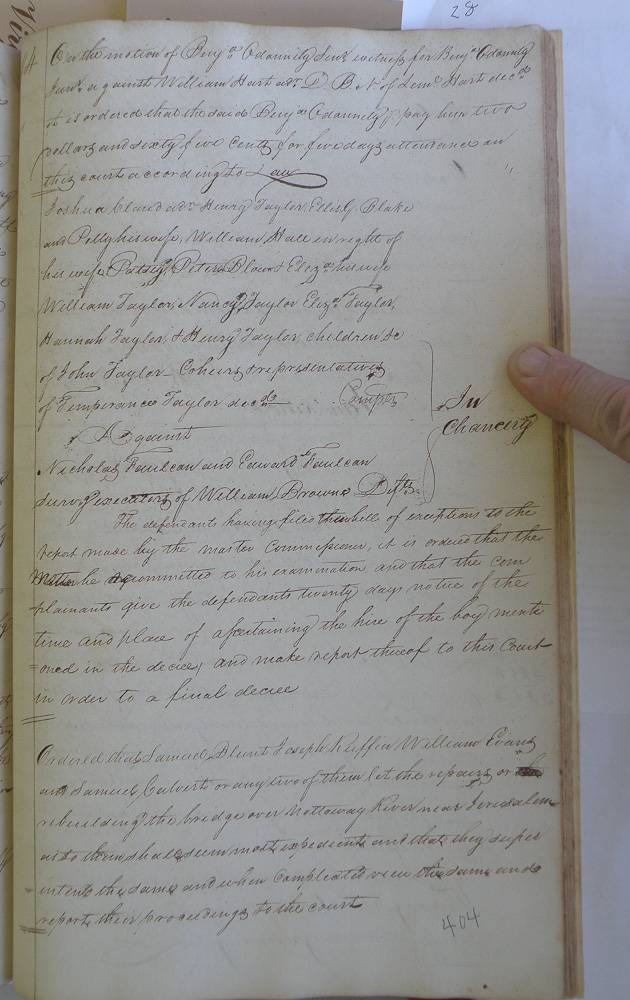 28
On the motion of Benja. Odannily Senr. witness for Benja. Odannily
Junr. against William Hart adr. D. B. N. of Leml. Hart decd.
it is ordered that the said Benja. Odannily pay him two
dollars and sixty five cents for five days attendance on
this court according to Law
Joshua Claud adr. Henry Taylor, Ellis G. Blake
and Polly his wife, William Hall in right of
his wife Patsy, Peter Blow & Eliza. his wife
William Taylor, Nancy Taylor Eliza. Taylor,
Hannah Taylor, & Henry Taylor, children &c
of John Taylor Coheirs & representatives
of Temperance Taylor decd. Complts
Against
In
Chancery
Nicholas Faulcon and Edward Faulcon
surv.g executors of William Browne Defts.
The defendants having filed their bill of exceptions to the
report made by the master Commissioner, it is ordered that the
Matter be recommitted to his examination and that the com
-plainants give the defendants twenty days notice of the
time and place of ascertaining the hire of the boy menti
=oned in the decree, and make report thereof to this Court
in order to a final decree
Ordered that Samuel Blunt Joseph Ruffin William Evans
and Samuel Calvert or any two of them let the repairs or
rebuilding the bridge over Nottoway River near Jerusalem
as to them shall seem most expedient and that they super
intend the same and when compleated view the same and
report their proceedings to the court
404